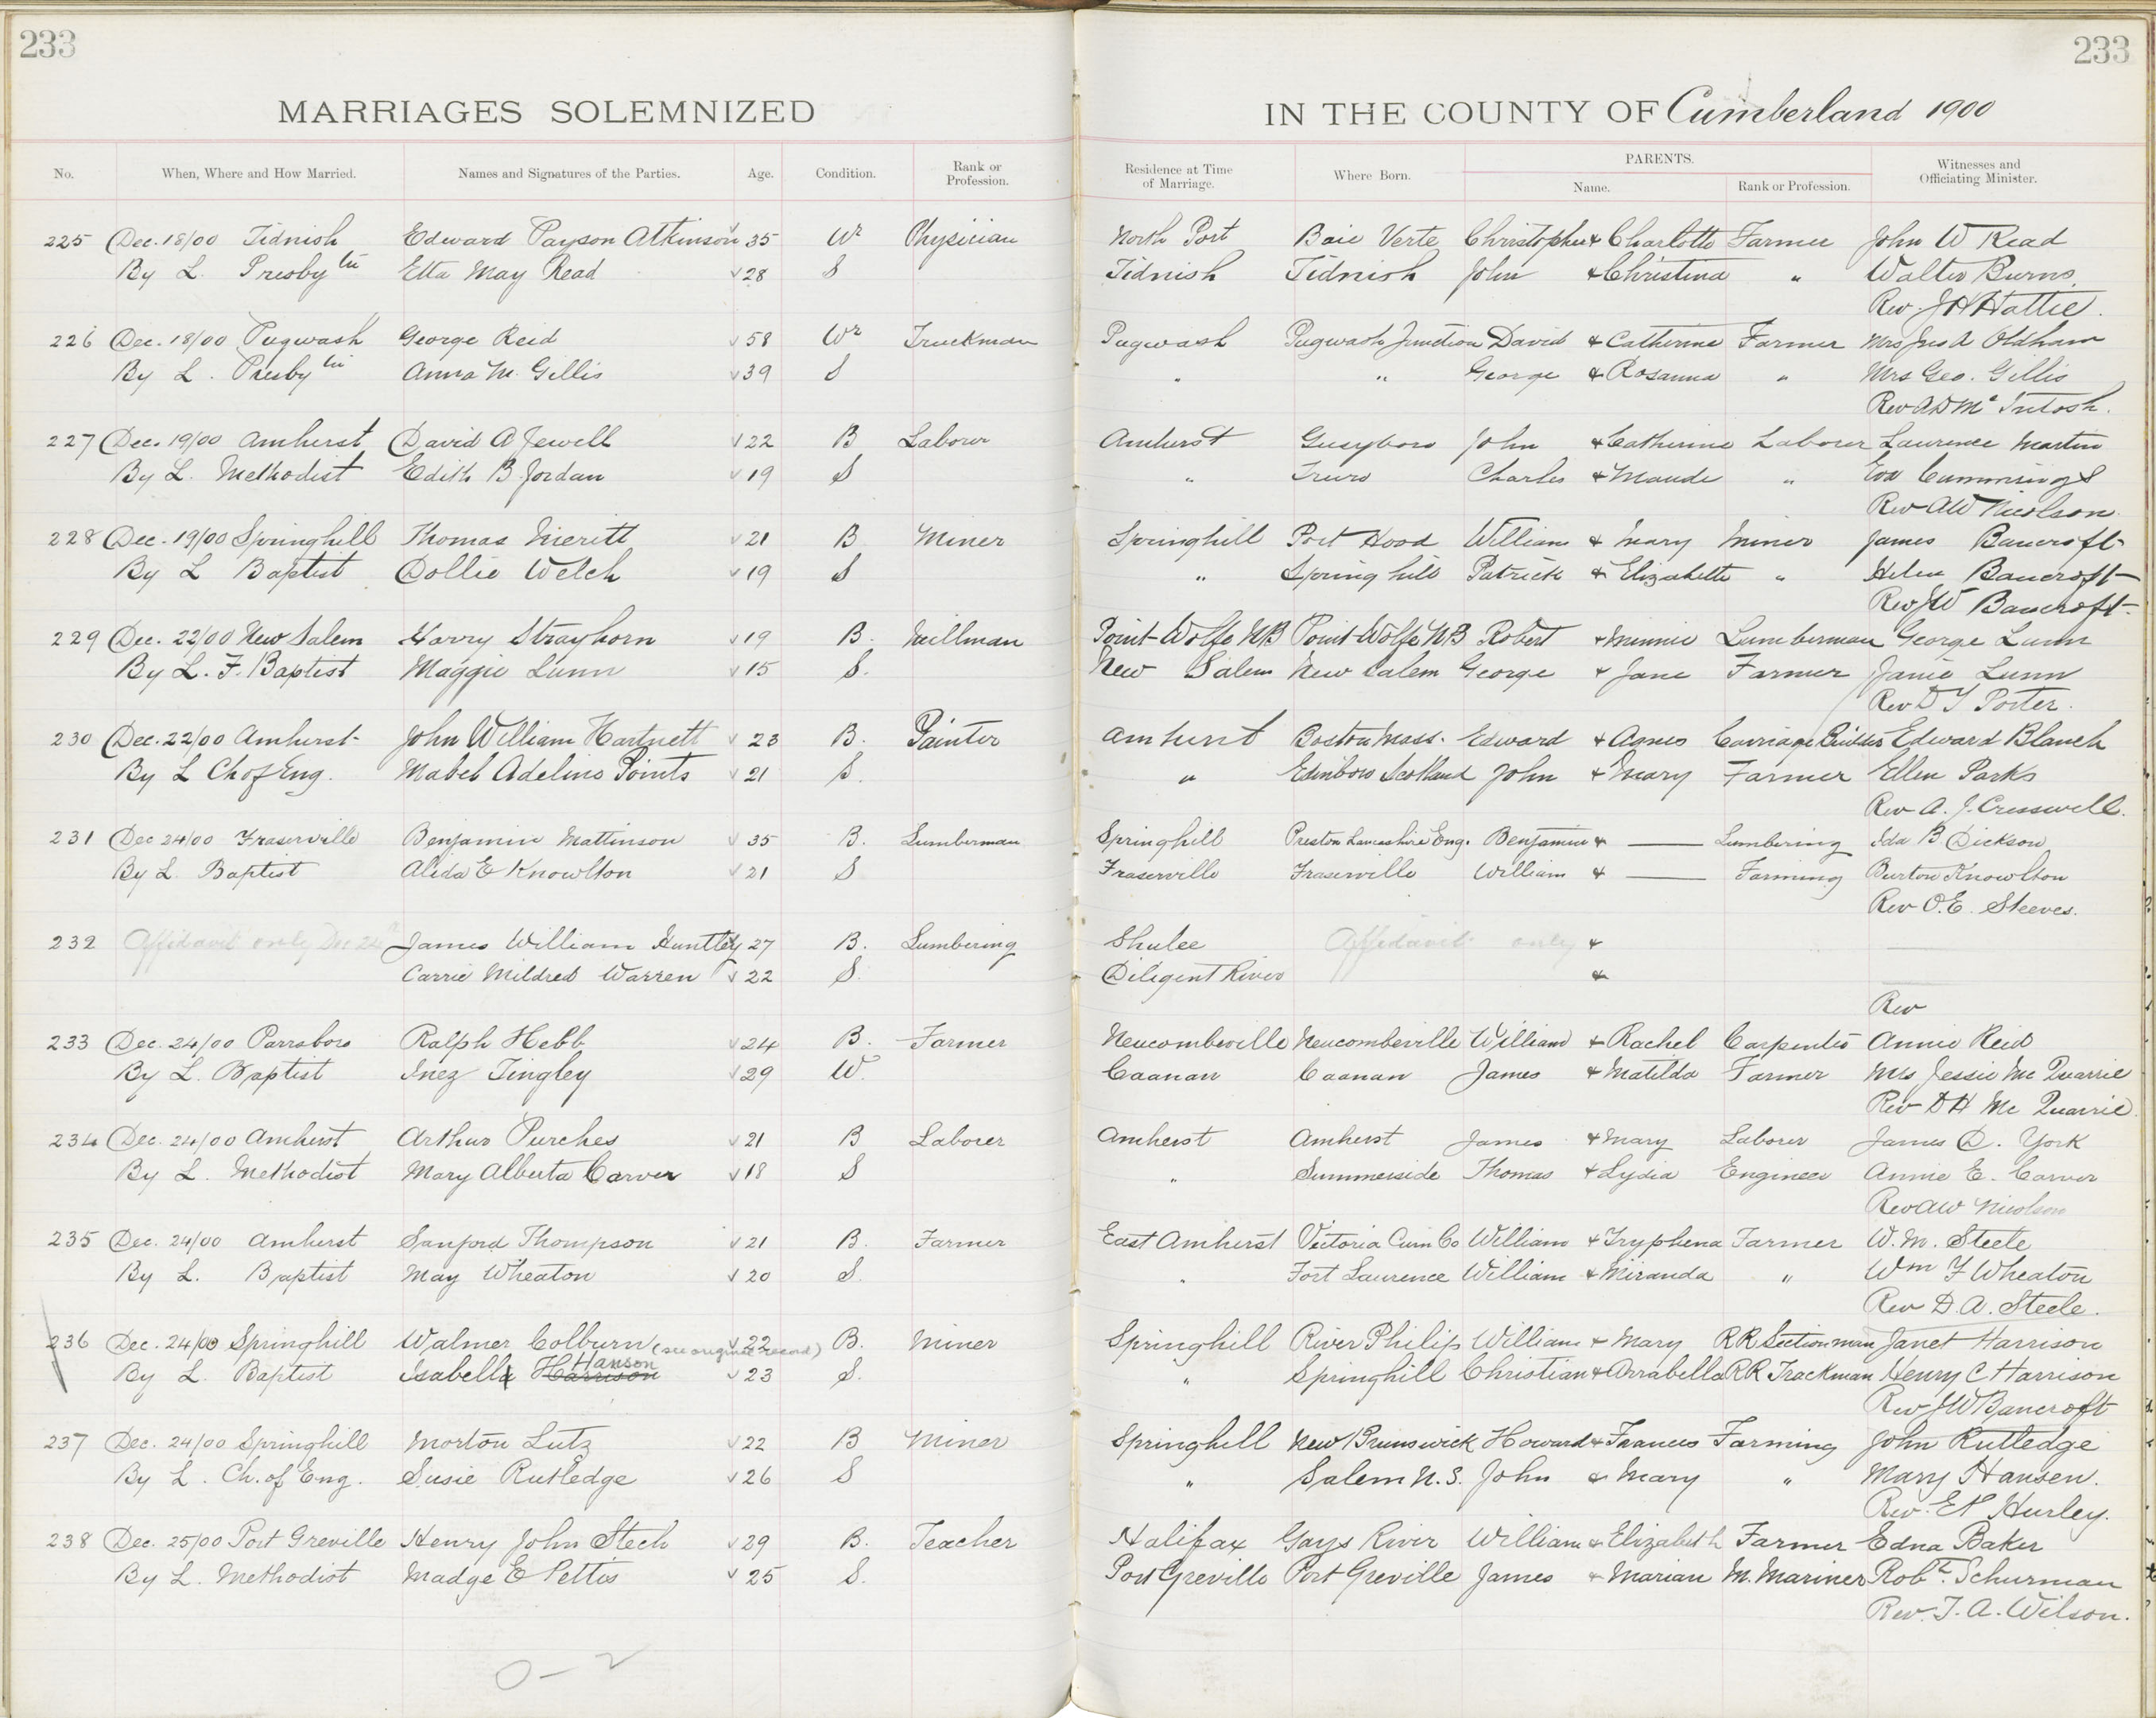 233
233
MARRIAGES SOLEMNIZED IN THE COUNTY OF Cumberland 1900
No. When, Where and How Married. Names and Signatures of the Parties. Age. Condition. Rank or Profession. Residence at Time of Marriage. Where Born. PARENTS. Name. Rank or Profession. Witnesses and Officiating Minister.
225 Dec. 18/00 Tidnish Edward Payson Atkinson 35 Wr Physician North Port Baie Verte Christopher & Charlotte Farmer John W Read
By L. Presby tn Etta May Read 28 S Tidnish Tidnish John & Christina " Walter Burns
Rev. J H Hattie.
226 Dec. 18/00 Pugwash George Reid 58 Wr Truckman Pugwash Pugwash Junction David & Catherine Farmer Mrs Jas A Oldham
By L. Presby tn Anna M. Gillis 39 S " " George & Rosanna " Mrs Geo. Gillis
Rev A D Mc Intosh.
227 Dec. 19/00 Amherst David A Jewell 22 B Labour Amherst Guysboro John & Catherine Laborer Laurence Martin
By L. Methodist Edith B. Jordan 19 S " Truro Charles & Maude " Eva Cummings
Rev AW Nicolson.
228 Dec. 19/00 Springhill Thomas Merritt 21 B Miner Springhill Port Hood William & Mary Miner James Bancroft
By L Baptist Dollie Welch 19 S " Spring hill Patrick & Elizabette " Helen Bancroft
Rev JW Bancroft.
229 Dec. 22/00 New Salem Harry Strayhorn 19 B. Millman Point Wolfe NB Point Wolfe NB Robert & Minnie Lumberman George Lunn
By L. F. Baptist Maggie Lunn 15 S. New Salem New Salem George & Jane Farmer Janie Lunn
Rev D T Porter.
230 Dec. 22/00 Amherst John William Hartnett 23 B. Painter Amherst Boston Mass. Edward & Agnes Carriage Builder Edward Blanch
By L Ch of Eng. Mabel Adeline Points 21 S. " Edinboro Scotland John & Mary Farmer Ellen Parks
Rev A. J. Cresswell.
231 Dec 24/00 Fraserville Benjamin Mattinson 35 B. Lumberman Springhill Preston Lancashire Eng. Benjamin & — Lumbering Ida B Dickson
By L. Baptist Alida E Knowlton 21 S Fraserville Fraserville William & — Farming Burton Knowlton
Rev O. E. Steeves.
232 Affidavit only Dec 24 James William Huntley 27 B. Lumbering Shulee Affidavit only &
Carrie Mildred Warren 22 S. Diligent River &
Rev
233 Dec. 24/00 Parrsboro Ralph Hebb 24 B. Farmer Neucombeville Neucombeville William & Rachel Carpenter Annie Reid
By L. Baptist Inez Tingley 29 W. Caanan Caanan James & Matilda Farmer Mrs Jessie Mc Quarrie
Rev D H Mc Quarrie.
234 Dec. 24/00 Amherst Arthur Purches 21 B Laborer Amherst Amherst James & Mary Laborer James D. York
By L. Methodist Mary Alberta Carver 18 S " Summerside Thomas & Lydia Engineer Annie E. Carver
Rev AW Nicolson
235 Dec. 24/00 Amherst Sanford Thompson 21 B. Farmer East Amherst Victoria Cum Co William & Tryphena Farmer W. M. Steele
By L. Baptist May Wheaton 20 S. " Fort Laurence William & Miranda " Wm F Wheaton
Rev D. A. Steele.
236 Dec. 24/00 Springhill Walmer Colburn (see original record) 22 B. Miner Springhill River Philip William & Mary RR Sectionman Janet Harrison
Hanson
By L. Baptist Isabella Harrison 23 S. " Springhill Christian & Arrabella RR Trackman Henry C Harrison
Rev JW Bancroft
237 Dec. 24/00 Springhill Morton Lutz 22 B Miner Springhill New Brunswick Howard & Frances Farming John Rutledge
By L. Ch. of Eng. Susie Rutledge 26 S " Salem N.S. John & Mary " Mary Hansen.
Rev. E P Hurley.
238 Dec. 25/00 Port Greville Henry John Stech 29 B. Teacher Halifax Gays River William & Elizabeth Farmer Edna Baker
By L. Methodist Madge E Pettis 25 S. Port Greville Port Greville James & Marian M. Mariner Robt. Schurman
Rev. T. A. Wilson.
0-2